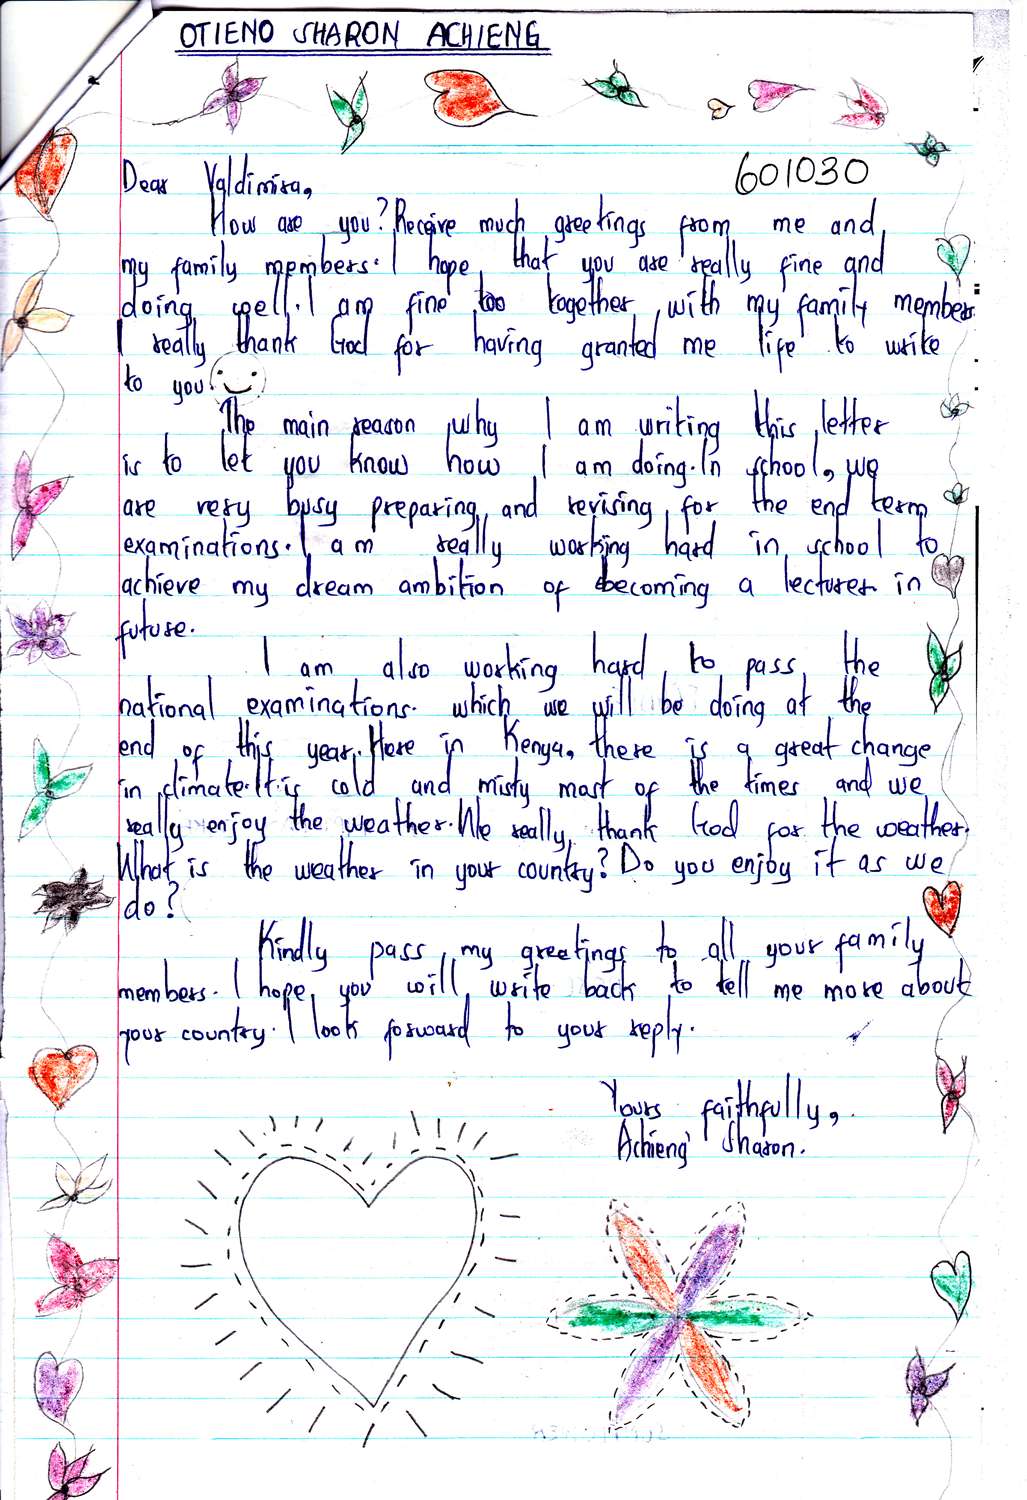 OTIENO SHARON ACHIENG
601030
Dear Valdimira,
How are you? Receive much greetings from me and
my family members. I hope that you are really fine and
doing well. I am fine too together with my family members
I really thank God for having granted me life to write
to you.
The main reason why I am writing this letter
is to let you know how I am doing. In school, we
are very busy preparing and revising for the end term
examinations. I am really working hard in school to
achieve my dream ambition of becoming a lecturer in
future.
I am also working hard to pass the
national examinations. which we will be doing at the
end of this year. Here in Kenya, there is a great change
in climate. It is cold and misty most of the times and we
really enjoy the weather. We really thank God for the weather.
What is the weather in your country? Do you enjoy it as we
do?
Kindly pass my greetings to all your family
members. I hope you will write back to tell me more about
your country. I look forward to your reply.
Yours faithfully,
Achieng' Sharon.